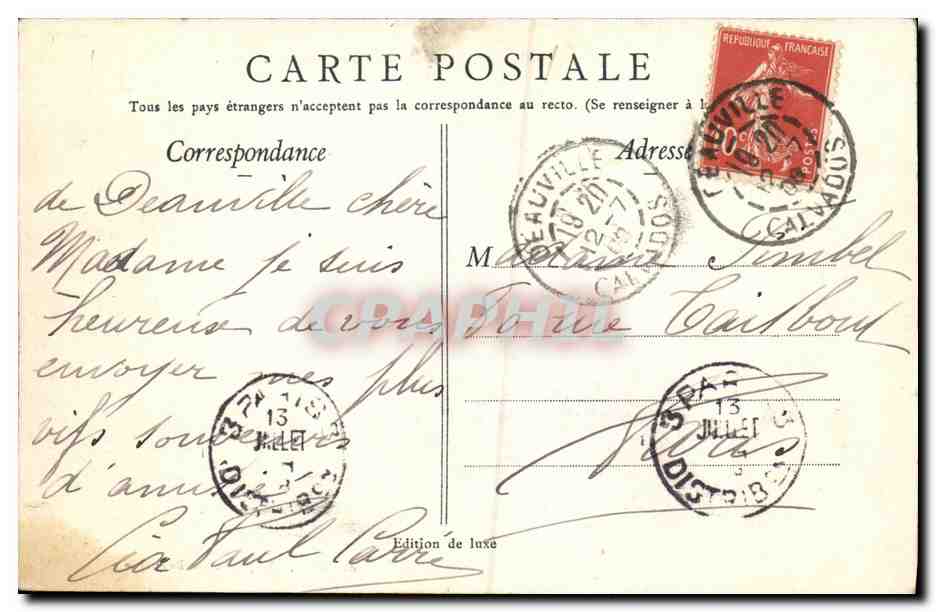 CARTE POSTALE
Tous les pays étrangers n'acceptent pas la correspondance au recto. (Se renseigner à l
Correspondance
Adresse
REPUBLIQUE FRANÇAISE
POSTES
DEAUVILLE
19 20
12 -7
CALVADOS
DEAUVILLE
19 20
12 -7
09
CALVADOS
de Deauville chère
Madame je suis
heureuse de vous
envoyer mes plus
vifs souvenirs
d'amitiés
Paul Carré
Madame Simbel
50 rue Taitbout
Paris
CPAPHIL
3 PARIS 3
13
JUILLET
DISTRIB
3 PARIS 3
13
JUILLET
DISTRIB
Edition de luxe